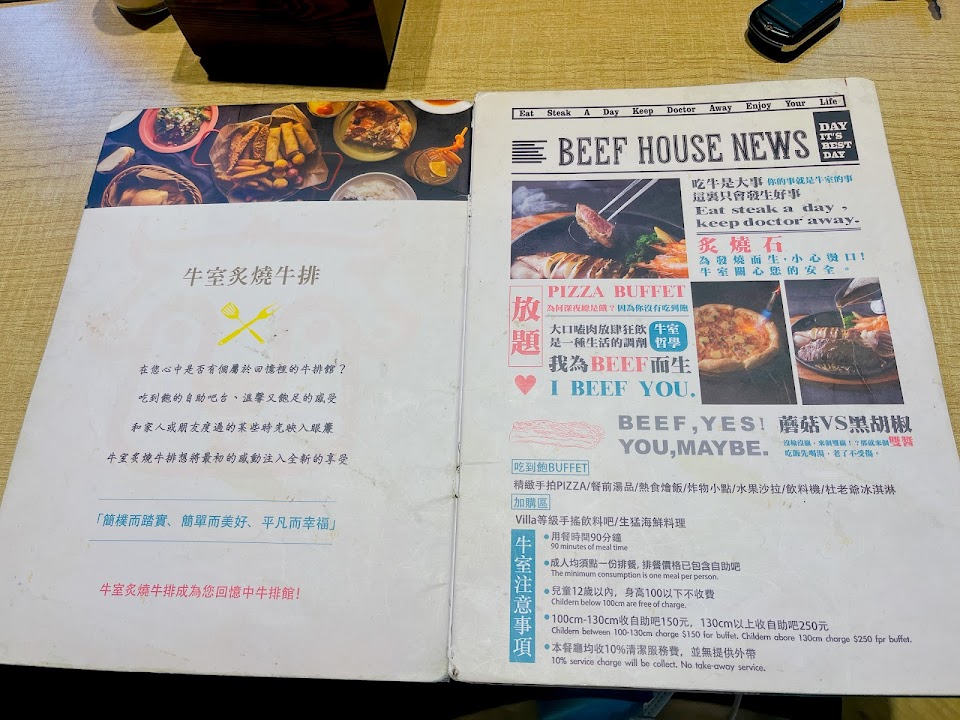 牛室炙燒牛排
在您心中是否有個屬於回憶裡的牛排館？
吃到飽的自助吧台、溫馨又飽足的感受
和家人或朋友度過的某些時光映入眼簾
牛室炙燒牛排想將最初的感動注入全新的享受
「簡樸而踏實、簡單而美好、平凡而幸福」
牛室炙燒牛排成為您回憶中牛排館!
Eat Steak A Day Keep Doctor Away Enjoy Your Life
BEEF HOUSE NEWS
DAY
IT'S
BEST
DAY
吃牛是大事 你的事就是牛室的事
這裏只會發生好事
Eat steak a day ,
keep doctor away.
炙燒石
為發燒而生，小心燙口!
牛室關心您的安全。
放題
PIZZA BUFFET
為何深夜總是餓？因為你沒有吃到飽
大口嗑肉放肆狂飲
是一種生活的調劑
牛室
哲學
我為BEEF而生
I BEEF YOU.
BEEF,YES!
YOU,MAYBE.
蘑菇VS黑胡椒
雙醬
吃飯先喝湯，老了不受傷。
吃到飽BUFFET
精緻手拍PIZZA/餐前湯品/熱食燴飯/炸物小點/水果沙拉/飲料機/杜老爺冰淇淋
加購區
Villa等級手搖飲料吧/生猛海鮮料理
牛室注意事項
用餐時間90分鐘
90 minutes of meal time
成人均須點一份排餐, 排餐價格已包含自助吧
The minimum consumption is one meal per person.
兒童12歲以內，身高100以下不收費
Childern below 100cm are free of charge.
100cm-130cm收自助吧150元，130cm以上收自助吧250元
Childern between 100-130cm charge $150 for buffet. Childern abore 130cm charge $250 fpr buffet.
本餐廳均收10%清潔服務費，並無提供外帶
10% service charge will be collect. No take-away service.